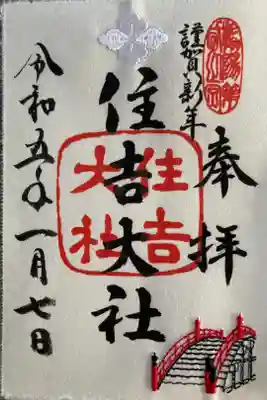 謹賀新年
奉拝
住吉大社
住吉
大社
令和五年一月七日